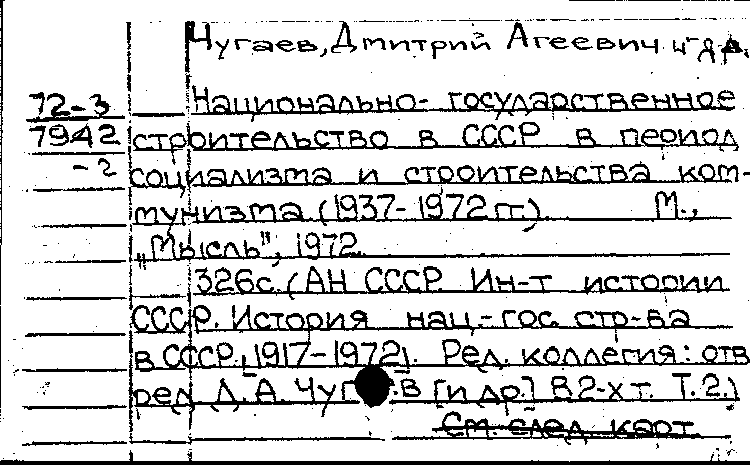 Чугаев, Дмитрий Агеевич и др.
72-3 Национально-государственное
7942 строительство в СССР в период
-2 социализма и строительства ком-
мунизма (1937-1972 гг.) М.,
„Мысль", 1972.
326с. (АН СССР. Ин-т истории
СССР. История нац.-гос. стр-ва
в СССР. (1917-1972). Ред. коллегия: отв
ред Д. А. Чуг в [и др.] В 2-х т. Т.2.)
См. след. карт.